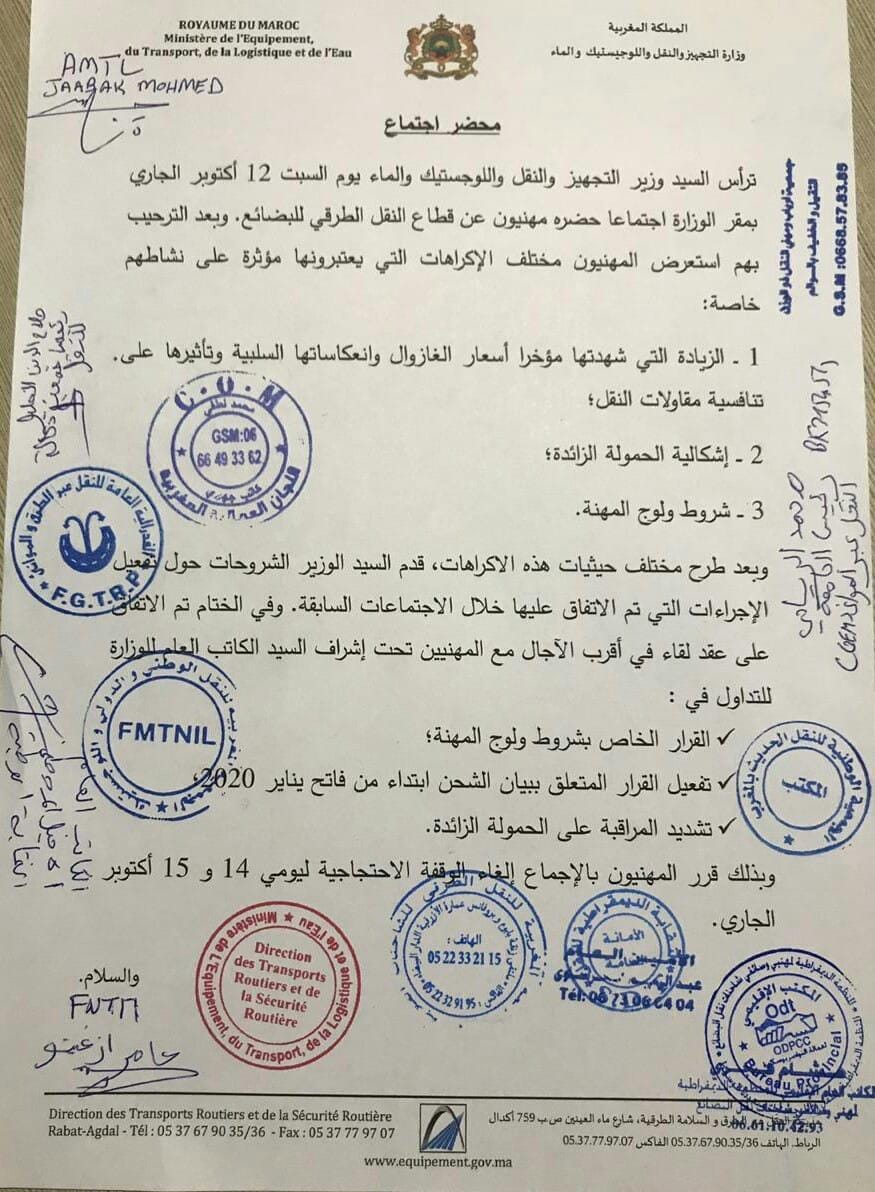 ROYAUME DU MAROC
Ministère de l'Equipement,
du Transport, de la Logistique et de l'Eau
المملكة المغربية
وزارة التجهيز والنقل واللوجيستيك والماء
AMTL
JAABAK MOHMED
محضر اجتماع
ترأس السيد وزير التجهيز والنقل واللوجستيك والماء يوم السبت 12 أكتوبر الجاري
بمقر الوزارة اجتماعا حضره مهنيون عن قطاع النقل الطرقي للبضائع. وبعد الترحيب
بهم استعرض المهنيون مختلف الإكراهات التي يعتبرونها مؤثرة على نشاطهم
خاصة:
1 - الزيادة التي شهدتها مؤخرا أسعار الغازوال وانعكاساتها السلبية وتأثيرها على.
تنافسية مقاولات النقل؛
2 - إشكالية الحمولة الزائدة؛
3 - شروط ولوج المهنة.
وبعد طرح مختلف حيثيات هذه الاكراهات، قدم السيد الوزير الشروحات حول تفعيل
الإجراءات التي تم الاتفاق عليها خلال الاجتماعات السابقة. وفي الختام تم الاتفاق
على عقد لقاء في أقرب الآجال مع المهنيين تحت إشراف السيد الكاتب العام للوزارة
للتداول في :
✓ القرار الخاص بشروط ولوج المهنة؛
✓ تفعيل القرار المتعلق ببيان الشحن ابتداء من فاتح يناير 2020،
✓ تشديد المراقبة على الحمولة الزائدة.
وبذلك قرر المهنيون بالإجماع إلغاء الوقفة الاحتجاجية ليومي 14 و 15 أكتوبر
الجاري.
والسلام.
FNTM
G.S.M :0668.57.83.85
C.O.M
محمد لطفي
GSM:06
66 49 33 62
الفدرالية العامة للنقل عبر الطرق و الموانئ
F.G.T.R.P
FMTNIL
الجمعية الوطنية للنقل الحديث بالمغرب
المكتب
Ministère de l'Equipement, du Transport, de la Logistique et de l'Eau
Direction
des Transports
Routiers et de
la Sécurité
Routière
الهاتف :
05 22 33 21 15
05 22 32 91 95
النقابة الديمقراطية للنقل
الأمانة
العامة
المكتب الإقليمي
Odt
ODPCC
Bureau Provincial
06.61.10.42.93
Direction des Transports Routiers et de la Sécurité Routière
Rabat-Agdal - Tél : 05 37 67 90 35/36 - Fax : 05 37 77 97 07
الطرق و السلامة الطرقية، شارع ماء العينين ص ب 759 أكدال
الرباط. الهاتف 05.37.67.90.35/36 الفاكس 05.37.77.97.07
www.equipement.gov.ma